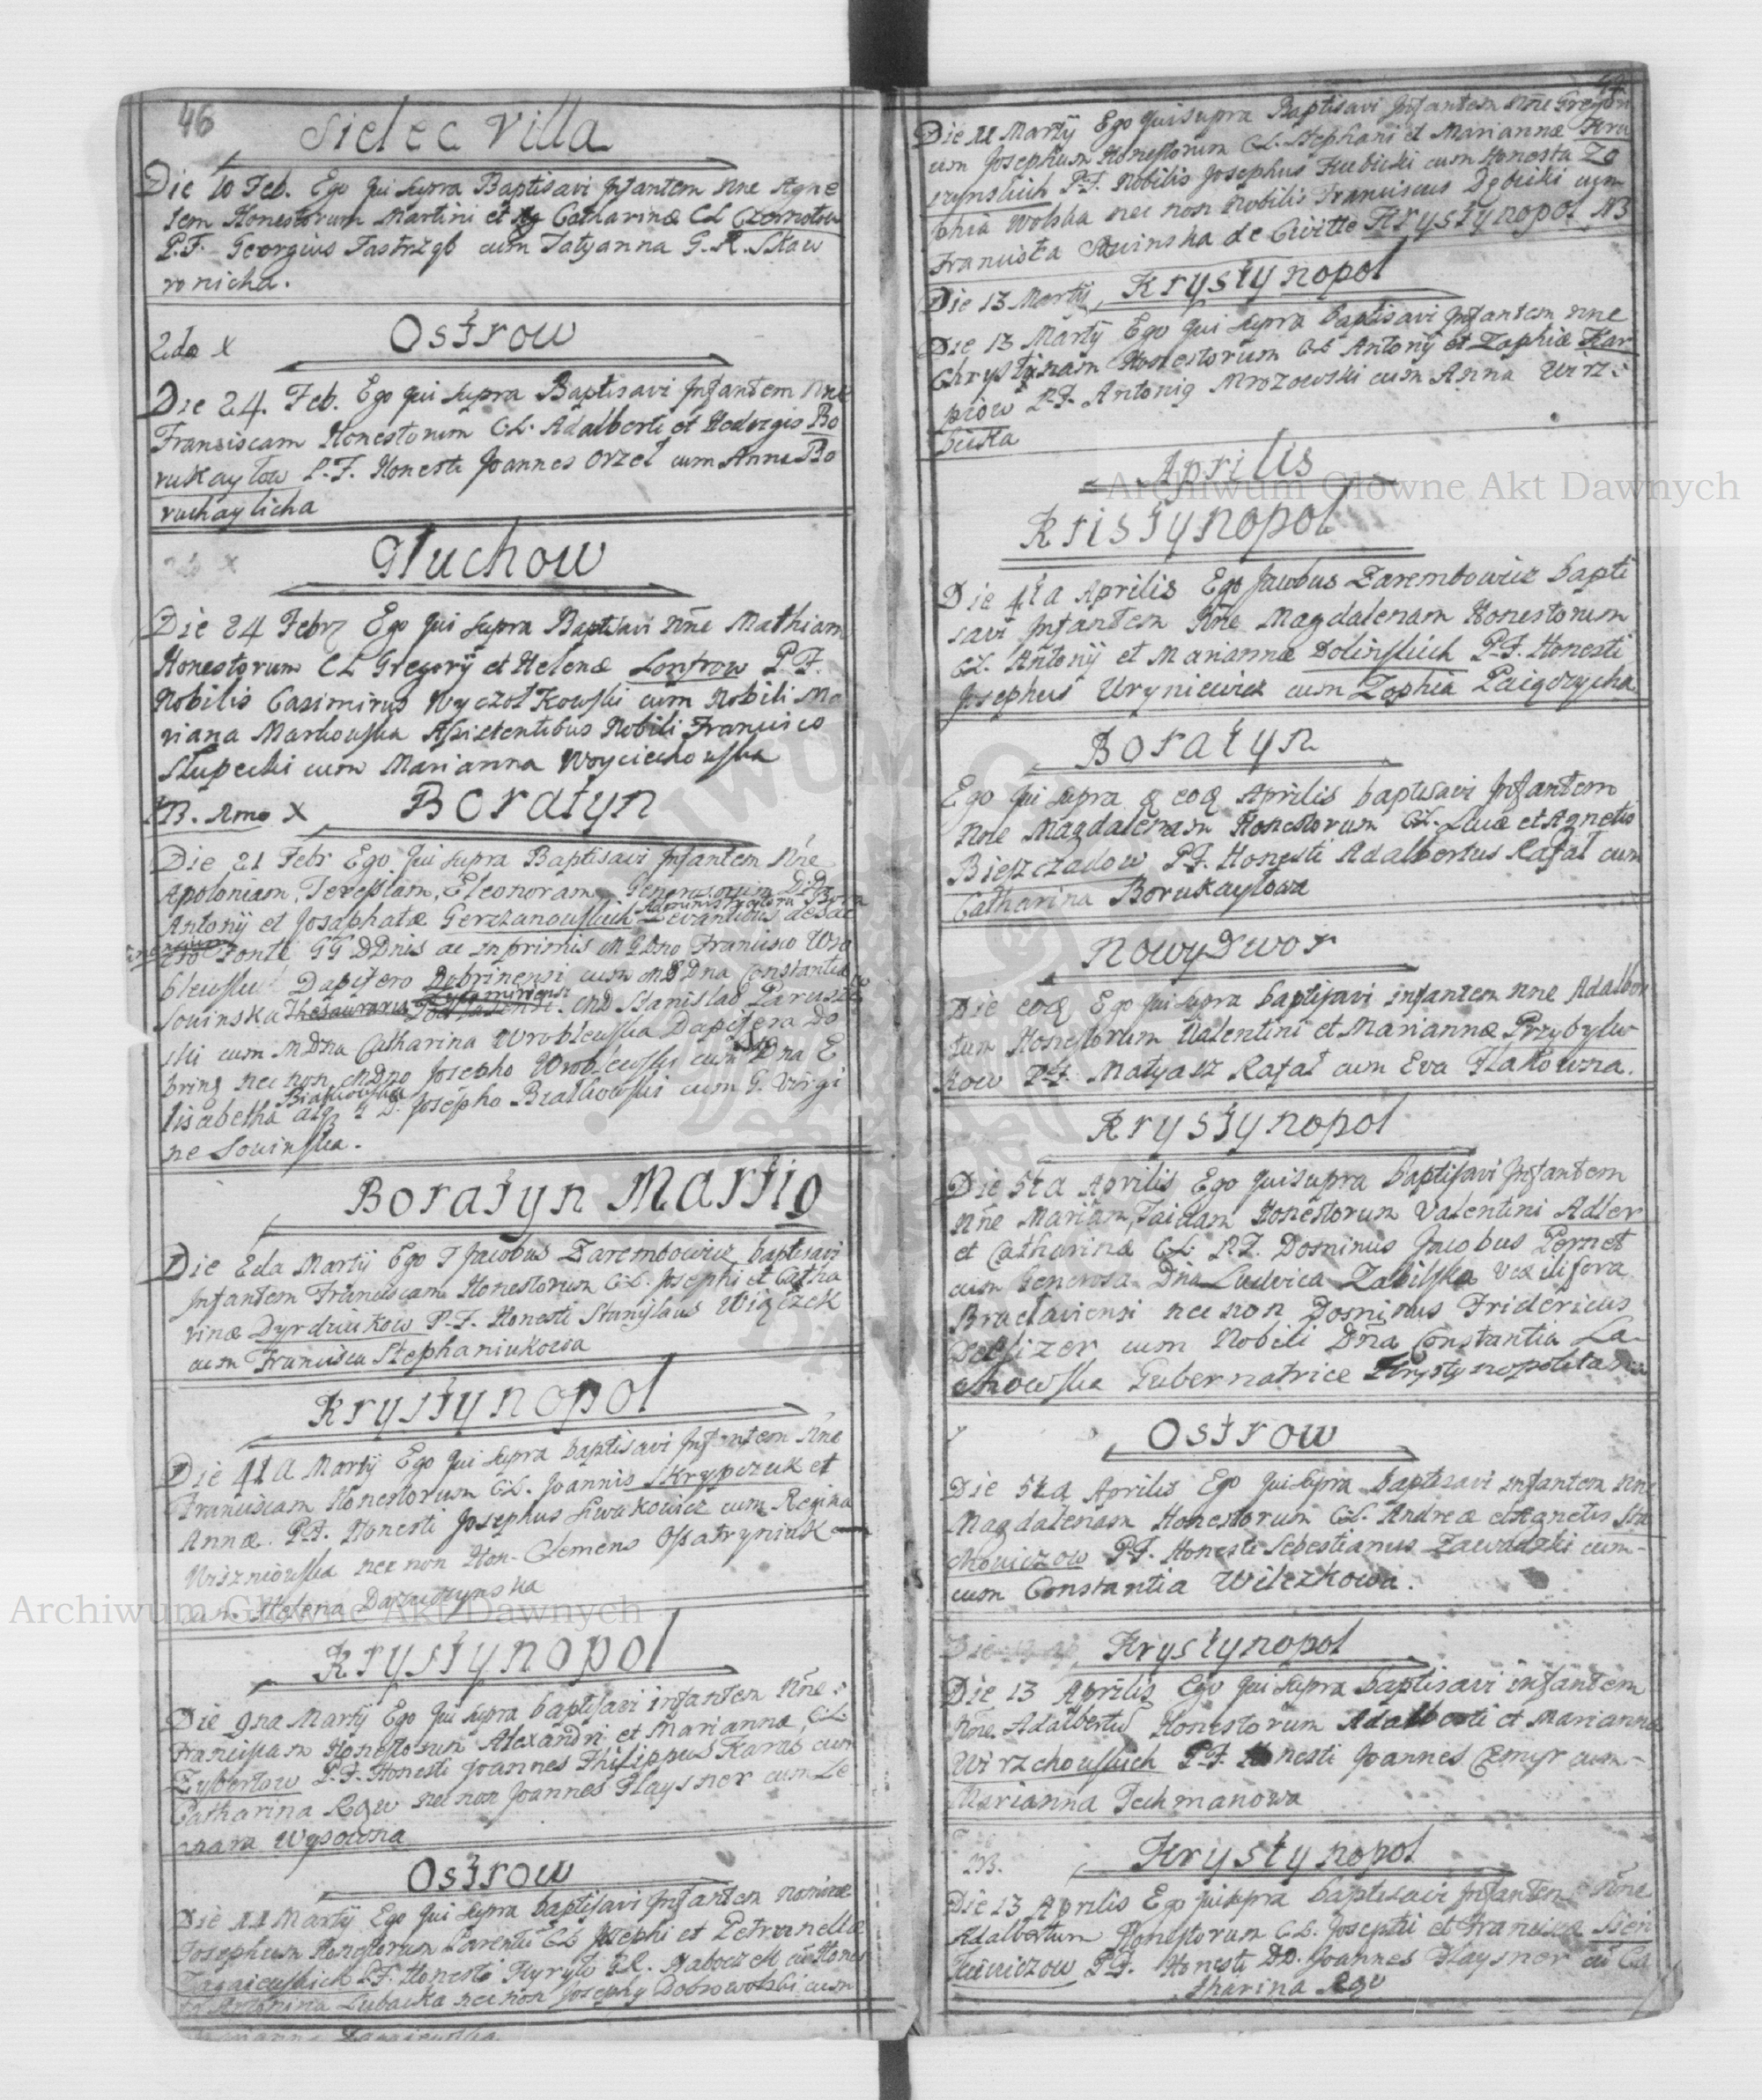 46
Sielec Villa
Die 10 Feb. Ego qui supra Baptisavi Infantem Nne Agne
tem Honestorum Martini et Catharinæ CL Czernotow
P.F. Georgius Jastrząb cum Tatyanna G.R. Skaw
ronicha.
Ostrow
2da X
Die 24. Feb. Ego qui supra Baptisavi Infantem Nne
Franciscam Honestorum CL. Adalberti et Hedvigis Bo
rukaylow P.F. Honesti Joannes Orzeł cum Anna Bo
ruchaylicha
Gluchow
Die 24 Febr Ego qui supra Baptisavi Nne Mathiam
Honestorum CL Gregorÿ et Helenæ P.F.
Nobilis Casimirus Wyczołkowski cum Nobili Ma
riana Markowska Assistentibus Nobili Francisco
Słupecki cum Marianna Woyciechowska
NB. X Boratyn
Die 21 Febr Ego qui supra Baptisavi Infantem Nne
Apoloniam, Teressiam, Eleonoram, Generosorum DD
Administratorum
Antonÿ et Josaphatæ Gerczanowskich Levantibus de sac
Fonte GG DDnis ac in primis MGDno Francisco Wro
blewski Dapifero Dobrinensi cum MDna Constantia
Sowinska MD Stanislao
ski cum MDna Catharina Wroblewska Dapifera Do
brine nec non MDno Josepho Wroblewski cum Dna E
lisabetha D. Josepho Białkowski cum G. Virgi
ne Sowinska.
Boratyn Martig
Die 2da Martÿ Ego Jacobus Zarembowicz baptisavi
Infantem Franciscam Honestorum CL. Josephi et Catha
rinæ Dyrdziukow P.F. Honesti Stanislaus Wiączek
cum Francisca Stephaniukowa
Krystynopol
Die 4ta Martÿ Ego qui supra baptisavi Infantem Nne
Franciscam Honestorum CL. Joannis Skrypczuk et
Annæ. P.F. Honesti Josephus Lewakowicz cum Regina
nec non Hon. Clemens
cum Helena
Krystynopol
Die 9na Martÿ Ego qui supra baptisavi infantem Nne
Franciscam Honestorum Alexandri et Mariannæ CL
Zybertow P.F. Honesti Joannes Philippus Karab cum
Catharina Rogw nec non Joannes Playsner cum Le
onara Wysowna
Ostrow
Die 11 Martÿ Ego qui supra baptisavi Infantem nomine
Josephum Honestorum Parentũ CL Josephi et Petronellæ
Zagaiewskich P.F. Honesti Kyryło G.R. cũ Hones
ta Antonina Lubacka nec non Josephg Dobrowolski cum
Marianna Zagaiewska
Die 11 Martÿ Ego qui supra Baptisavi Infantem Nne Gregori
um Josephum Honestorum CL. Stephani et Mariannæ Kru
czynskich P.F. Nobilis Josephus cum Honesta Zo
phia Wolska nec non Nobilis Franciscus Dębicki cum
Francisca de Civitte Krystynopol NB
Krystynopol
Die 13 Martÿ
Die 13 Martÿ Ego qui supra baptisavi Infantem Nne
Chrystinam Honestorum CL Antonÿ et Zophiæ Kar
piow P.F. Antonig Mrozowski cum Anna Wirz:
bicka
Aprilis
Kristynopol
Die 4ta Aprilis Ego Jacobus Zarembowicz bapti
savi Infantem Nne Magdalenam Honestorum
CL. Antonÿ et Mariannæ Dolinskich P.F. Honesti
Josephus Uryniewicz cum Zophia
Boratyn
Ego qui supra Aprilis baptisavi Infantem
Nne Magdalenam Honestorum CL. Lucæ et Agnetis
Bieszczadow P.F. Honesti Adalbertus Rafał cum
Catharina Borukaylowa
Nowy Dwor
Die Ego qui supra baptisavi infantem Nne Adalber
tum Honestorum Valentini et Mariannæ Przybylw
kow P.F. Matyasz Rafał cum Eva
Krystynopol
Die 5ta Aprilis Ego qui supra baptisavi Infantem
Nne Mariam, Honestorum Valentini Adler
et Catharinæ CL. P.F. Dominus Jacobus Pernet
cum Generosa Dna Ludvica Zabilska Vexilifera
Braclaviensi nec non Dominus Fridericus
cum Nobili Dna Constantia La
chowska Gubernatrice Krystynopolitana
Ostrow
Die 5ta Aprilis Ego qui supra baptisavi infantem Nne
Magdalenam Honestorum CL. Andreæ et Agnetis Sta
chowiczow P.F. Honesti Sebestianus Zawadzki cum
cum Constantia Wilczkowa.
Krystynopol
Die 13 Aprilis Ego qui supra baptisavi infantem
Nne. Adalbertũ Honestorum Adalberti et Mariannæ
Wirzchowskich P.F. Honesti Joannes cum
Marianna Techmanowa
Krystynopol
NB.
Die 13 Aprilis Ego qui supra baptisavi Infantem Nne
Adalbertum Honestorum CL. Josephi et Franciscæ Sien
kiewiczow P.F. Honesti DD. Joannes Playsner cũ Ca
tharina Rogw
Archiwum Główne Akt Dawnych
Archiwum Główne Akt Dawnych